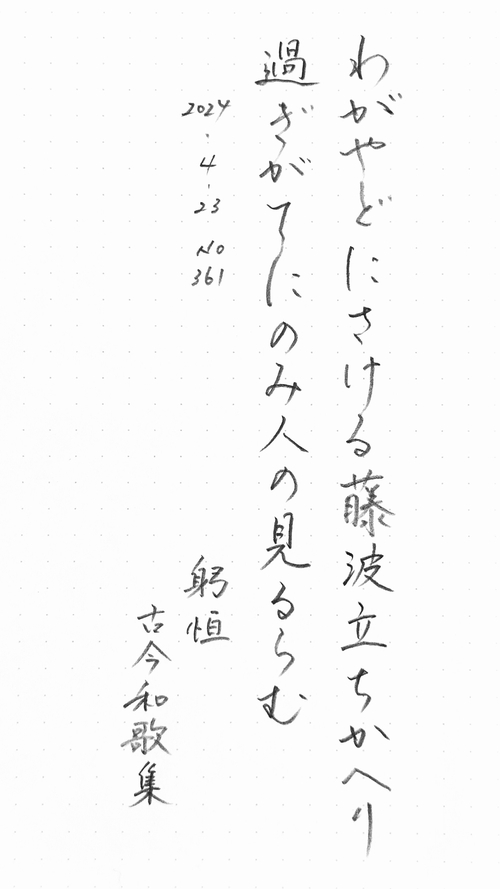 わがやどにさける藤波立ちかへり
過ぎがてにのみ人の見るらむ
2024・4・23 No 361
躬恒
古今和歌集